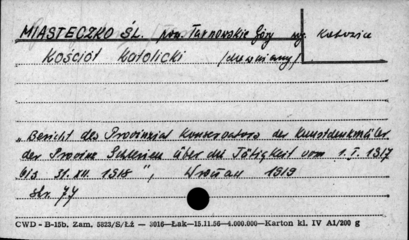 MIASTECZKO ŚL. pow. Tarnowskie Góry woj. Katowice
Kościół katolicki /drewniany/
„Bericht des Provinzial Konservators der Kunstdenkmäler
der Provinz Schlesien über die Tätigkeit vom 1.I.1917
bis 31.XII.1918", Wrocław 1919
str. 74
CWD – B-15b, Zam. 5823/S/Łż — 8016—Łak—15.11.56—4.000.000—Karton kl. IV A1/200 g